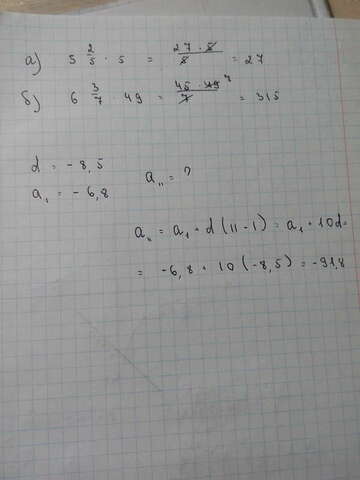 а) 5 2/5 · 5 = 27 · 5/5 = 27
б) 6 3/7 · 49 = 45 · 49 7/7 = 315
d = - 8,5
a₁ = - 6,8
a₁₁ = ?
a₁₁ = a₁ + d (11 - 1) = a₁ + 10d =
= -6,8 + 10 (-8,5) = -91,8